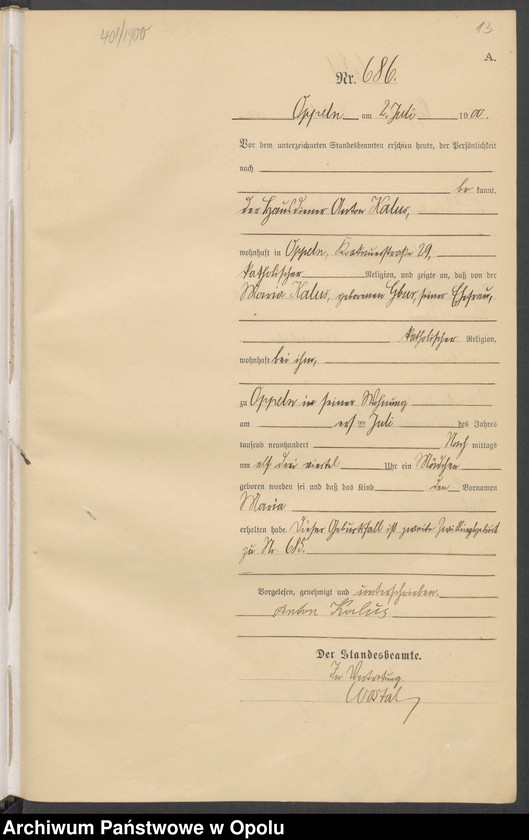 401/1900
13
A.
Nr. 686.
Oppeln am 2. Juli 1900.
Vor dem unterzeichneten Standesbeamten erschien heute, der Persönlichkeit
nach
be kannt,
der Hausdiener Anton Kalus,
wohnhaft in Oppeln, Krakauerstraße 29,
katholischer Religion, und zeigte an, daß von der
Maria Kalus, geborenen Gbur, seiner Ehefrau,
katholischer Religion,
wohnhaft bei ihm,
zu Oppeln in seiner Wohnung
am ersten Juli des Jahres
tausend neunhundert Nach mittags
um elf drei viertel Uhr ein Mädchen
geboren worden sei und daß das Kind den Vornamen
Maria
erhalten habe. Dieser Geburtsfall ist zweite Zwillingsgeburt
zu Nr. 685.
Vorgelesen, genehmigt und unterschrieben.
Anton Kalus
Der Standesbeamte.
In Vertretung.
Wostal
Archiwum Państwowe w Opolu